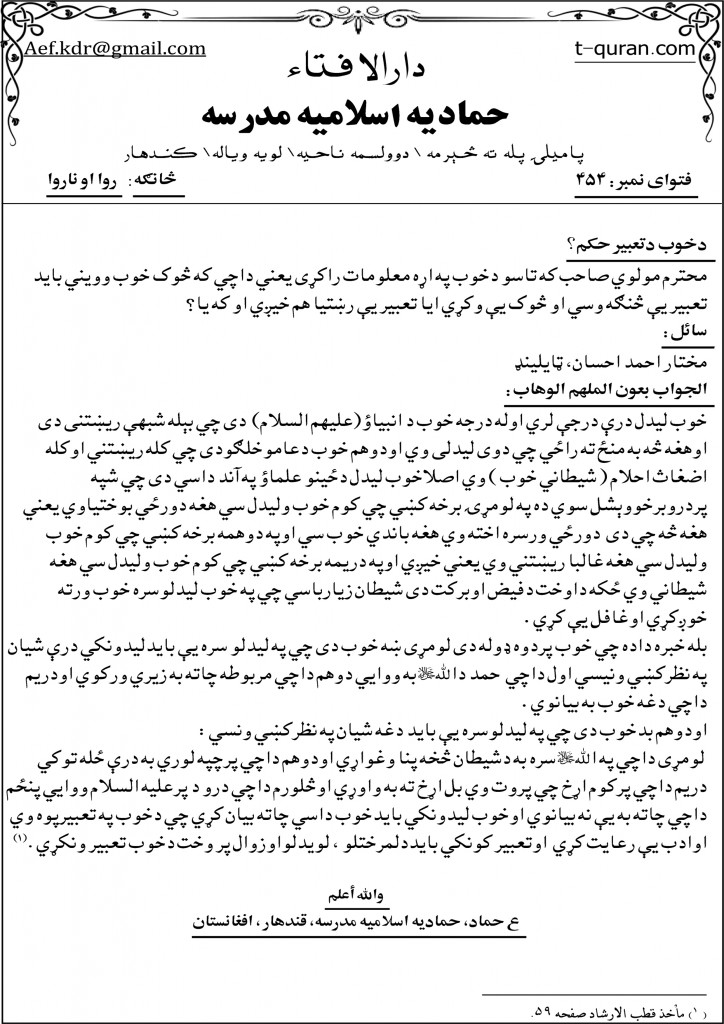 Aef.kdr@gmail.com
t-quran.com
دارالافتاء
حمادیه اسلامیه مدرسه
پامیلۍ پله ته څېرمه \ دوولسمه ناحیه\ لویه ویاله\ کندهار
فتوای نمبر: ۴۵۴
څانګه: روا او ناروا
دخوب دتعبیر حکم؟
محترم مولوي صاحب که تاسو دخوب په اړه معلومات راکړی یعني داچي که څوک خوب وویني باید
تعبیر یې څنګه وسي او څوک یې وکړي ایا تعبیر یې رښتیا هم خیږي او که یا؟
سائل:
مختار احمد احسان، ټایلینډ
الجواب بعون الملهم الوهاب:
خوب لیدل درې درجې لري اوله درجه خوب د انبیاؤ(علیهم السلام) دی چي بېله شبهې ریښتنی دی
اوهغه څه به منځ ته راځي چي دوی لیدلی وي اودوهم خوب دعامو خلګودی چي کله ریښتني اوکله
اضغاث احلام( شیطاني خوب)وي اصلاخوب لیدل دځینو علماؤ په آند داسي دی چي شپه
پردروبرخووېشل سوې ده په لومړۍ برخه کښي چي کوم خوب ولیدل سي هغه دورځي بوختیاوي یعني
هغه څه چي دی دورځي ورسره اخته وي هغه باندي خوب سي اوپه دوهمه برخه کښي چي کوم خوب
ولیدل سي هغه غالبا ریښتنی وي یعني خیږي اوپه دریمه برخه کښي چي کوم خوب ولیدل سي هغه
شیطاني وي ځکه داوخت دفیض اوبرکت دی شیطان زیارباسي چي په خوب لیدلو سره خوب ورته
خوږکړي اوغافل یې کړي.
بله خبره داده چي خوب پردوه ډوله دی لومړی ښه خوب دی چي په لیدلو سره یې باید لیدونکي درې شیان
په نظرکښي ونیسي اول داچي حمد دالله ﷻ به ووایي دوهم داچي مربوطه چاته به زیري ورکوي اودریم
داچي دغه خوب به بیانوي.
اودوهم بدخوب دی چي په لیدلوسره یې باید دغه شیان په نظرکښي ونسي:
لومړی داچي په الله ﷻ سره به دشیطان څخه پنا وغواړي اودوهم داچي پرچپه لوري به درې ځله توکي
دریم داچي پرکوم اړخ چي پروت وي بل اړخ ته به واوړي اوڅلورم داچي درود پرعلیه السلام ووایي پنځم
داچي چاته به یې نه بیانوي اوخوب لیدونکي بایدخوب داسي چاته بیان کړي چي دخوب په تعبیرپوه وي
اوادب یې رعایت کړي اوتعبیرکونکي باید دلمرختلو، لویدلو اوزوال پر وخت دخوب تعبیر ونکړي.(۱)
والله أعلم
ع حماد، حمادیه اسلامیه مدرسه، قندهار، افغانستان
(۱) مأخذ قطب الارشاد صفحه ۵۹.